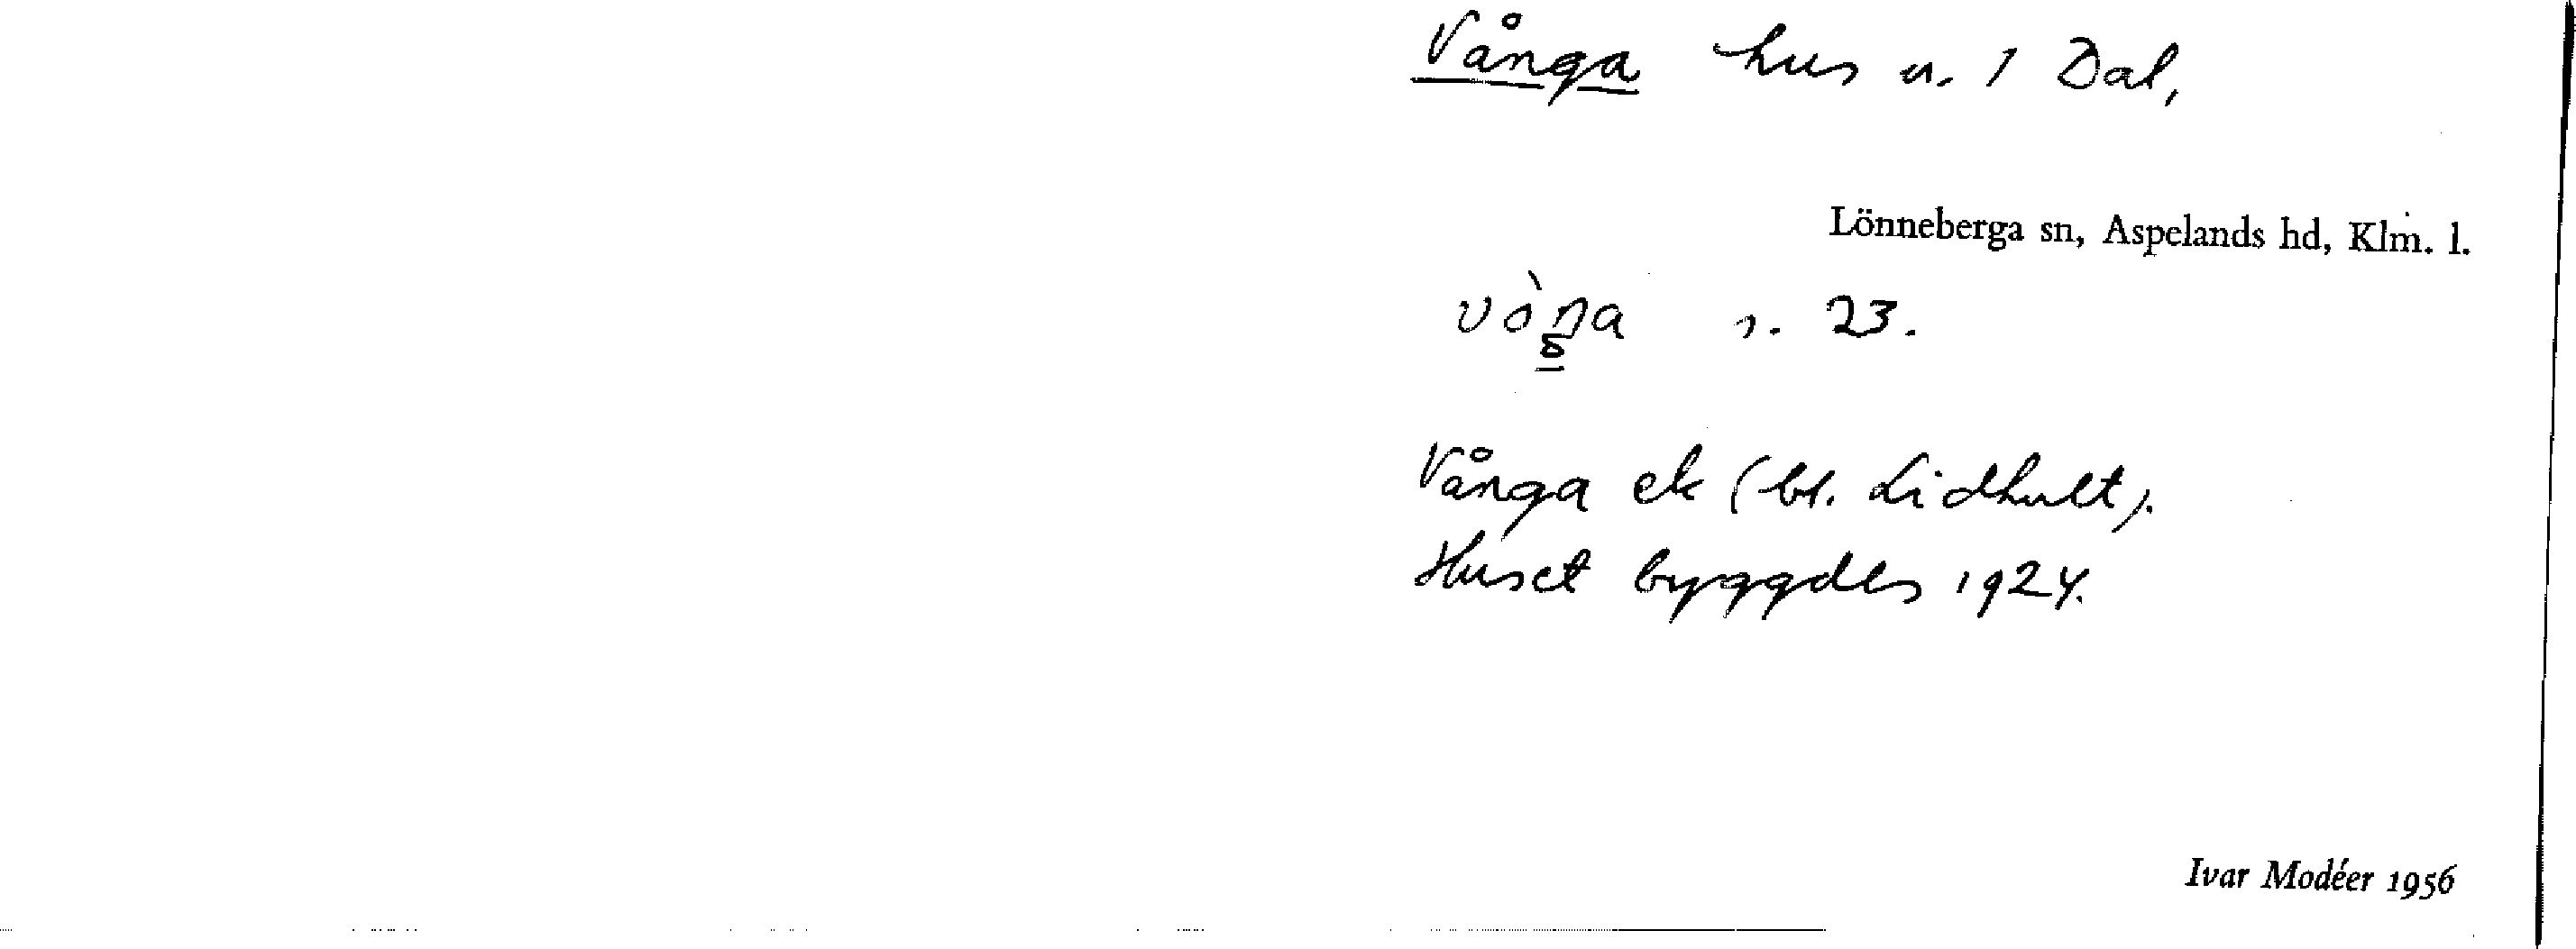 Vånga hus u. 1 Dal,
Lönneberga sn, Aspelands hd, Klm. l.
s. 23.
Vånga ek (bl. Lidhult).
Huset byggdes 1924.
Ivar Modéer 1956